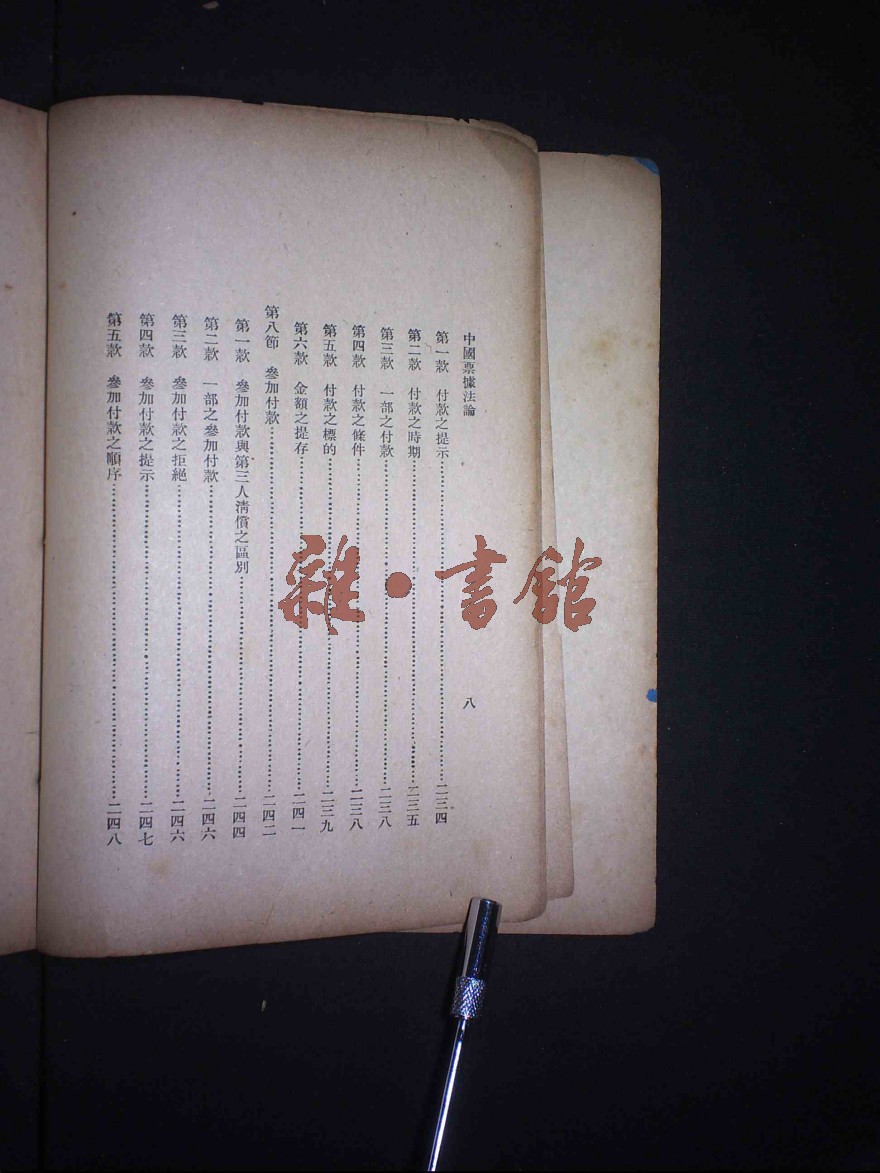 中國票據法論 八
第一款 付款之提示……二三四
第二款 付款之時期……二三五
第三款 一部之付款……二三八
第四款 付款之條件……二三八
第五款 付款之標的……二三九
第六款 金額之提存……二四一
第八節 參加付款……二四二
第一款 參加付款與第三人淸償之區別……二四四
第二款 一部之參加付款……二四六
第三款 參加付款之拒絕……二四六
第四款 參加付款之提示……二四七
第五款 參加付款之順序……二四八
雜·書館